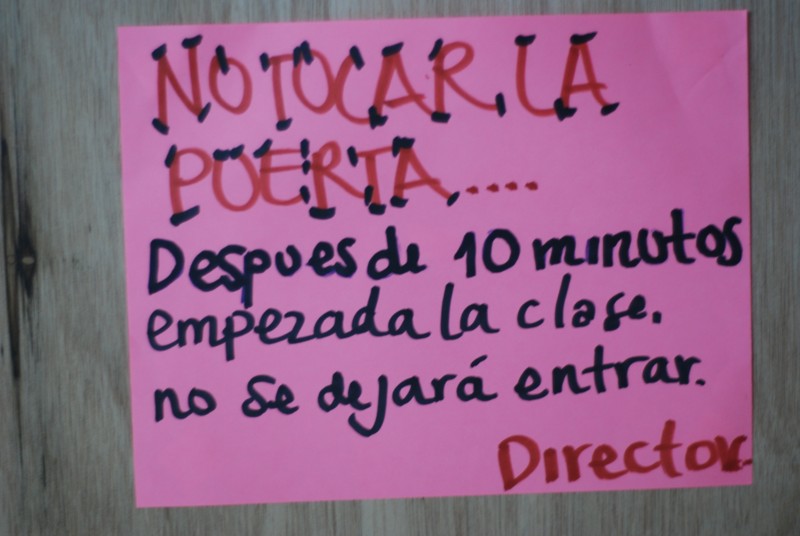 NO TOCAR LA
PUERTA.....
Despues de 10 minutos
empezada la clase.
no se dejará entrar.
Director.